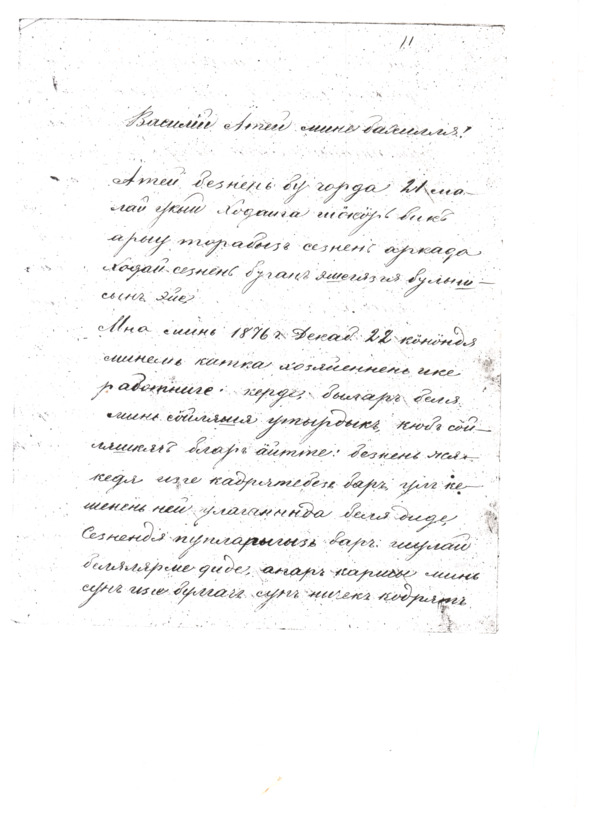 11
Василiй Атей мине бахилля!
Атей безнень бу горда 21 ма-
лай укый Ходайга шöкöръ бикъ
арыу торабызъ сезнень аркада
ходай сезнень буганъ эшегязгя булыш-
сынъ эйе
Мна минь 1876 г Декаб 22 кöнöндя
минемь катка хозяйеннень ике
работниге керде, быларъ беля
минь сöйляшя утырдыкъ, кюбъ сöй-
ляшкячъ бларъ äйтте: безнень жя-
кедя изге кадрятебезъ баръ, улъ ке-
шенень ней улаганында беля диде,
Сезнендя пупларыгызъ баръ шулай
белялярме диде, анаръ каршы минь
сунъ изге булгачъ сунъ ничекъ кодрятъ